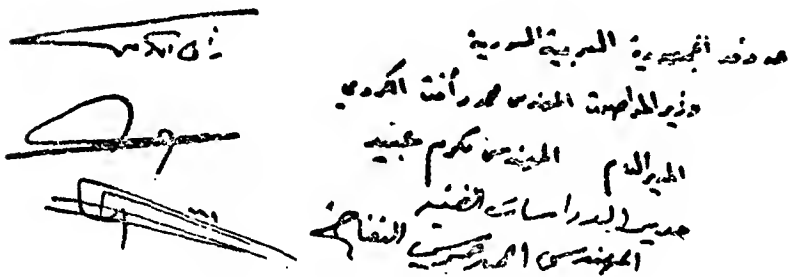 عن وفد الجمهورية العربية السورية
وزير المواصلات المهندس محمد رأفت الكردي
المدير العام المهندس مكرم عبيد
مدير الدراسات الفنية
المهندس النفاخ